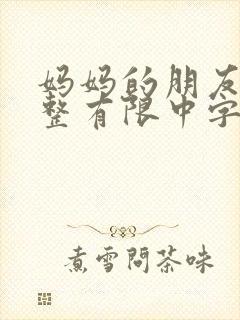 妈妈的朋友
整有限中字
煮雪問茶味